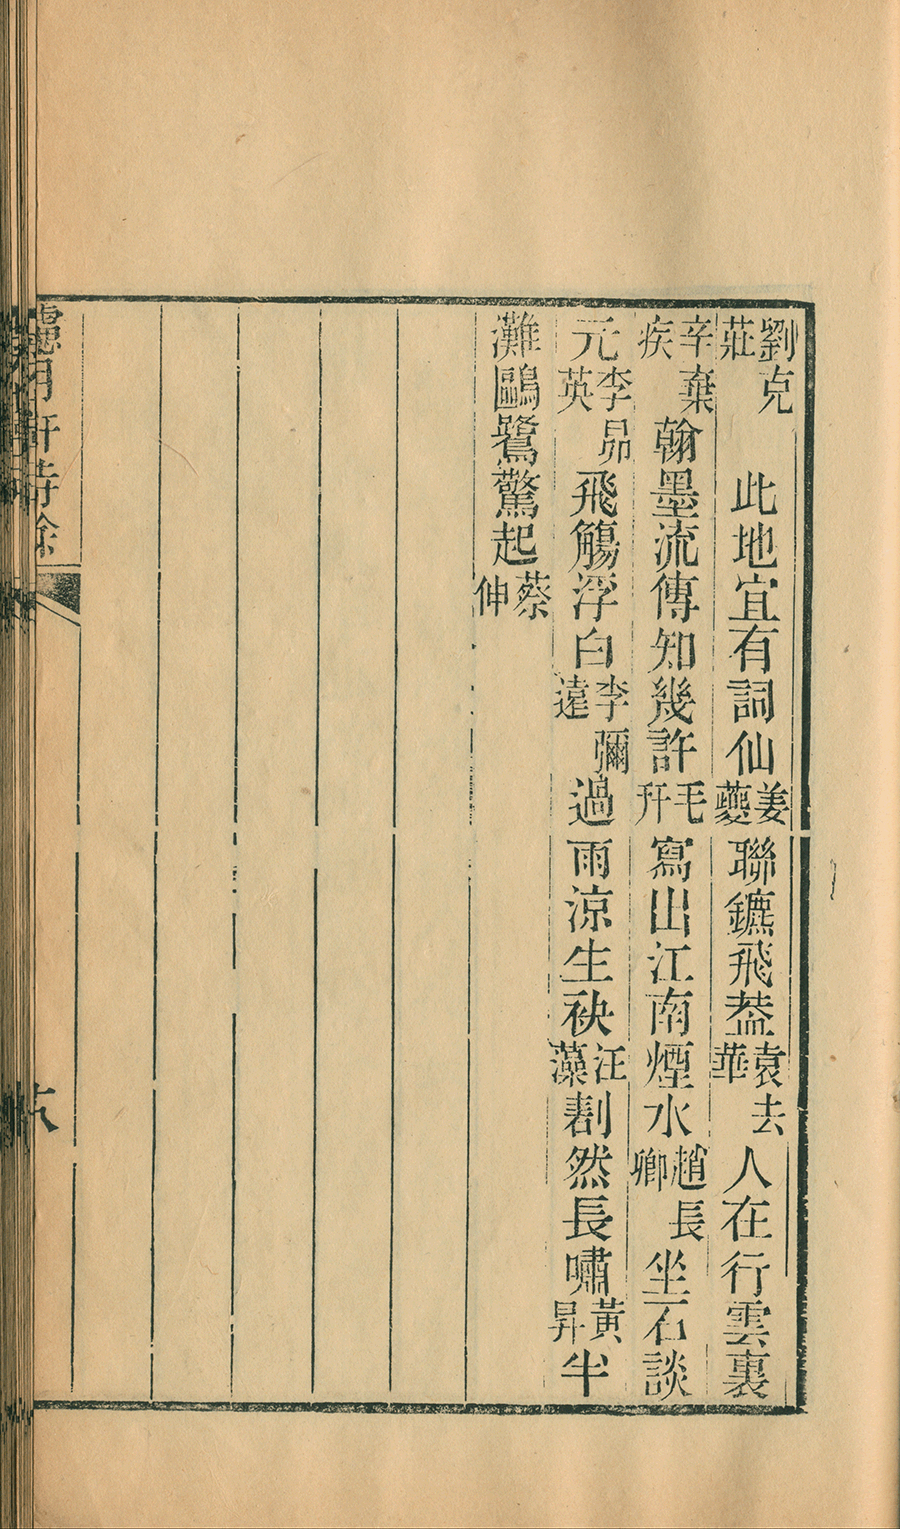 劉克莊此地宜有詞仙姜夔聯鑣飛葢袁去華人在行雲裏
辛棄疾翰墨流傳知幾許毛幵寫出江南煙水趙長卿坐石談
元李昴英飛觴浮白李彌遠過雨涼生袂汪藻劃然長嘯黃昇半
灘鷗鷺驚起蔡伸
濾月軒詩餘